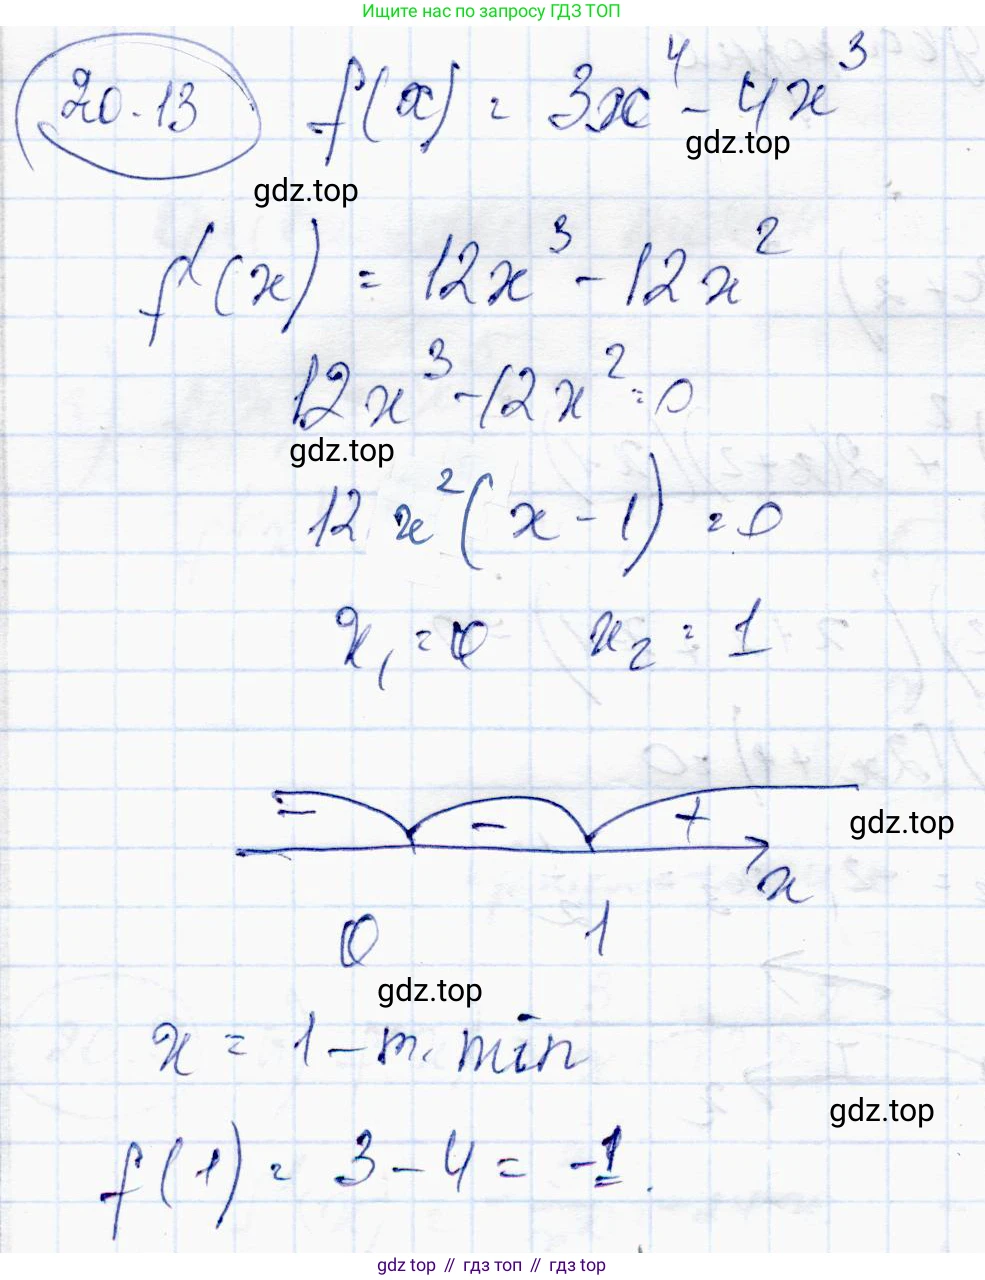 Ищите нас по запросу ГДЗ ТОП
20.13 f(x) = 3x⁴ - 4x³
gdz.top
gdz.top
f'(x) = 12x³ - 12x²
12x³ - 12x² = 0
gdz.top
12x²(x - 1) = 0
x₁ = 0 x₂ = 1
= - +
gdz.top
x
0 1
gdz.top
x = 1 - т. min
gdz.top
f(1) = 3 - 4 = -1.
gdz top // гдз топ // гдз top